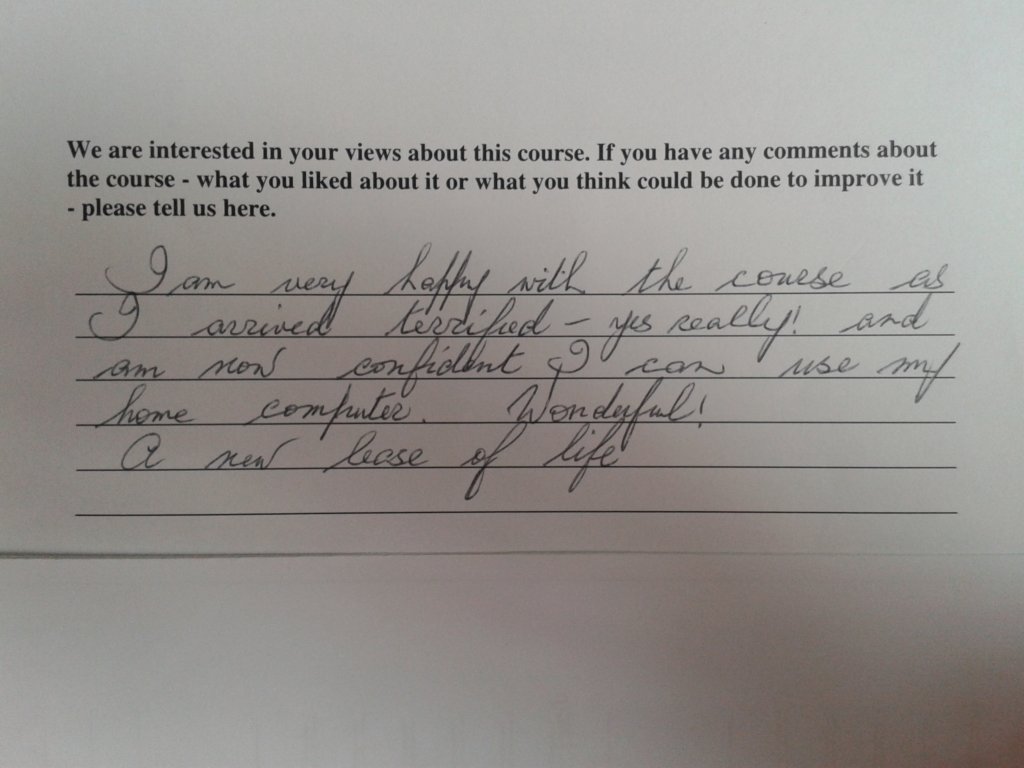 We are interested in your views about this course. If you have any comments about
the course - what you liked about it or what you think could be done to improve it
- please tell us here.
I am very happy with the course as
I arrived terrified – yes really! and
am now confident I can use my
home computer. Wonderful!
A new lease of life